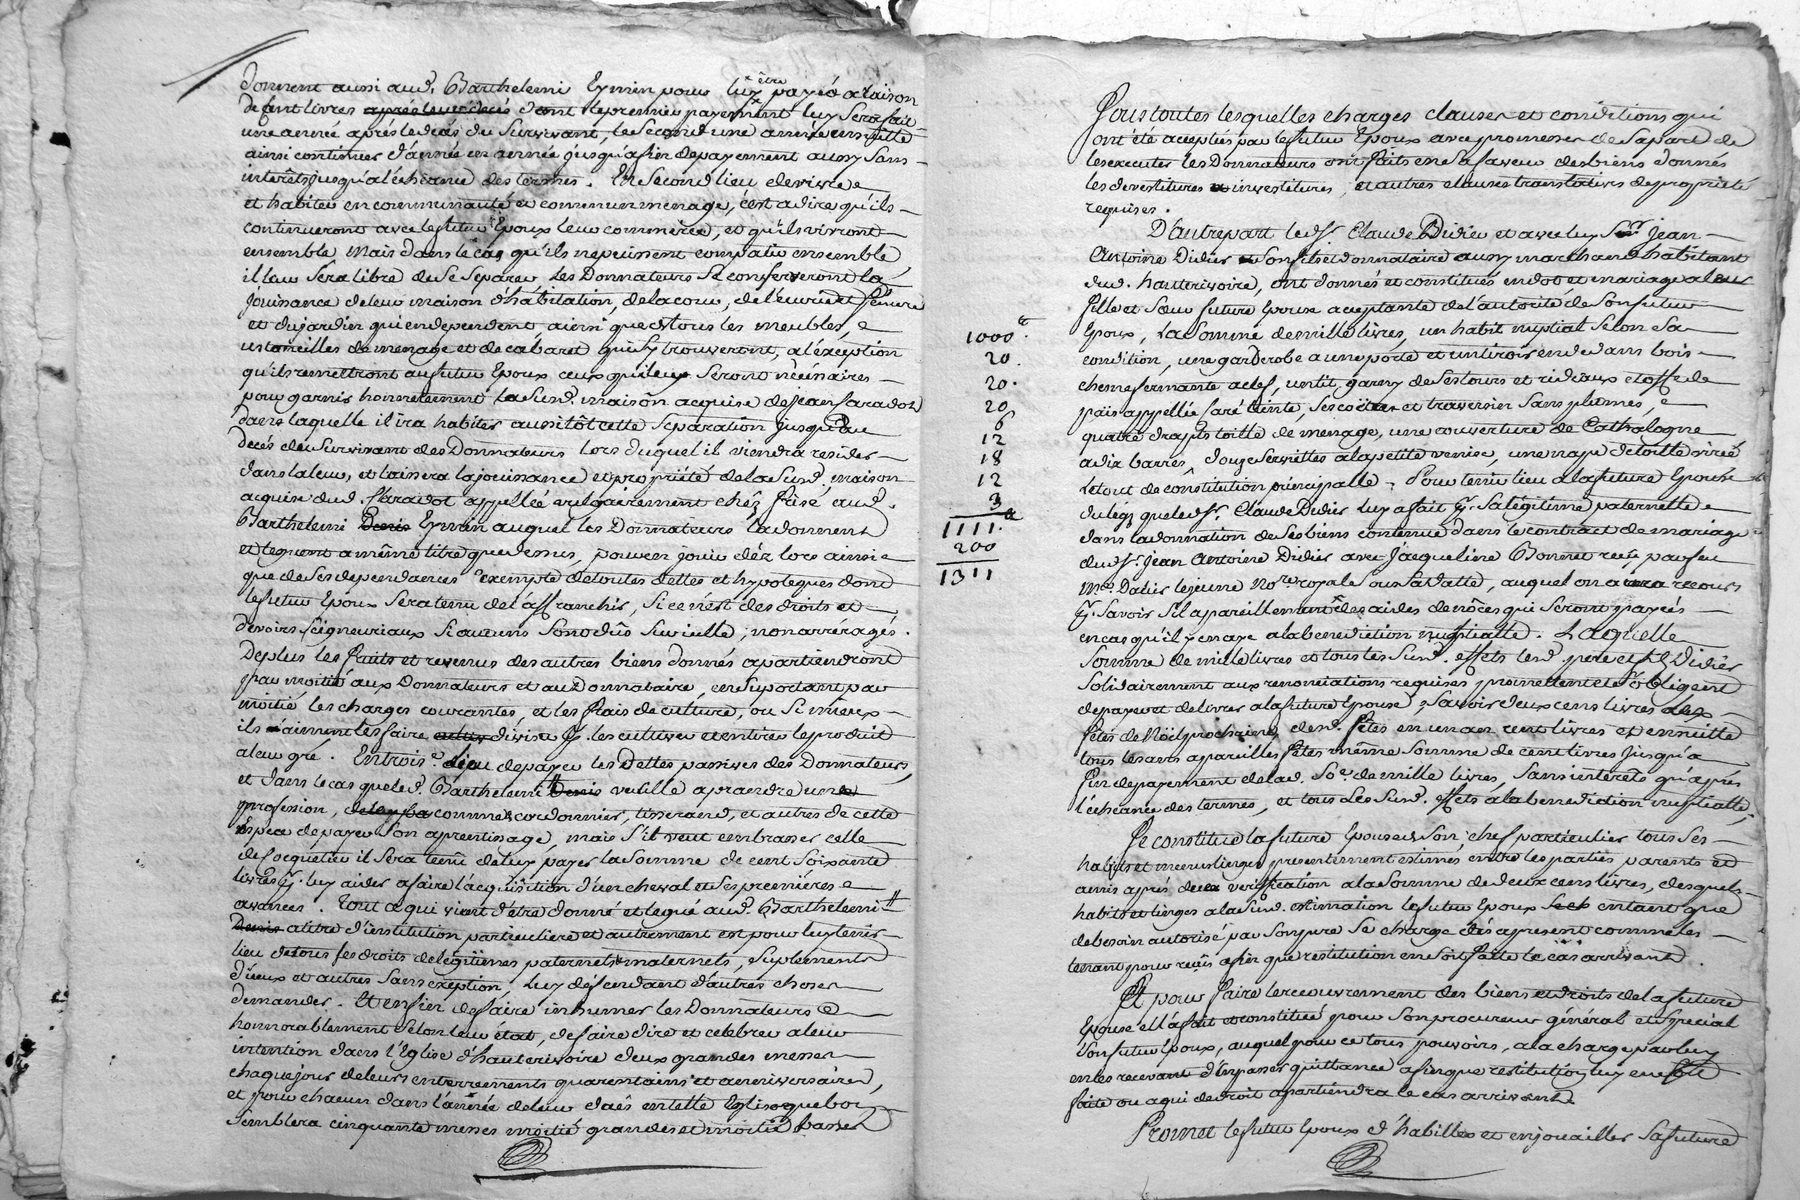 donnent aussi aud. Barthelemi Eymin pour luy être payée a raison
de cent livres après leur décés dont le premier payement luy sera fait
une année après le decés du Survivant, le second une année ensuitte
ainsi continuer d'année en année jusqu'a fin de payement aussy sans
interêts jusqu'a l'échéance des termes. En Second lieu de vivre
et habiter en communauté et commun menage, c'est a dire qu'ils
continueront avec le futur Epoux leur commerce, et qu'ils vivront
ensemble Mais dans le cas qu'ils ne puissent compatir ensemble
il leur sera libre de se separer les Donnateurs se conserveront la
jouissance de leur maison d'habitation, de la cour, de l'écurie et feniere
et du jardin qui en dependent ainsi que de tous les meubles, e
ustancilles de menage et de cabaret qui s'y trouveront, a l'éxception
qu'ils remettront au futur Epoux ceux qui leur seront nécéssaires
pour garnir honnetement la susd. maison acquise de Jean faradot
dans laquelle il ira habiter aussitôt cette separation jusqu'au
Decés du Survivant des Donnateurs lors duquel il viendra resider
dans la leur, et laissera la jouissance et proprieté de la susd. maison
acquise dud. faradot appellée vulgairement chéz frisé aud.
Barthelemi Denis Eymin auquel les Donnateurs la donnent
et leguent a même titre que dessus, pour en jouir déz lors ainsi
que de ses dependances exempte de toutes dettes et hypoteques dont
le futur Epoux sera tenu de l'affranchir, si ce n'est des droits et
devoirs seigneuriaux si aucuns sono dûs sur icelle, non arréragés.
De plus les fruits et revenus des autres biens donnés apartiendront
par moitié aux Donnateurs et au Donnataire, en suportant par
moitié les charges courantes, et les frais de culture, ou si mieux
ils n'aiment les faire diviser pr. les cultiver et entirer le produit
a leur gré. En trois.e lieu de payer les Dettes passives des Donnateurs,
et dans le cas que led. Barthelemi Denis veuille aprendre une
profession, comme cordonnier, tisserand, et autres de cette
espéce de payer son aprentissage, mais s'il veut embrasser celle
de il sera tenû de luy payer la somme de cent soixante
livres pr. luy aider a faire l'acquisition d'un cheval et ses premières
avances. Tout ce qui vient d'être donné et legué aud. Barthelemi
Denis a titre d'institution particuliere et autrement est pour luy tenir
lieu de tous ses droits de légitimes paternels & maternels, suplements
d'iceux et autres sans exeption. Luy défendant d'autres choses
demander. Et enfin de faire inhumer les Donnateurs
honnorablement selon leur état, de faire dire et celebrer a leur
intention dans l'Eglise d'hauterivoire deux grandes messes
chaque jour de leurs enterrements quarentains et anniversaires,
et pour chacun dans l'année de leur decés en telle Eglise que bon
semblera cinquante messes moitié grandes et moitié basses
Sous toutes lesquelles charges clauses et conditions qui
ont été aceptées par le futur Epoux avec promesse de sa part de
les executer les Donnateurs ont faits en sa faveur des biens donnés
les devestitures et investitures, et autres clauses translatives de proprieté
requises.
D'autre part led. Sr. Claude Didier et avec luy Sr. Jean
Antoine Didier son fils et donnataire aussy marchand habitant
aud. hauterivoire, ont donnés et constitués en dot et mariage a leur
fille et sœur future Epouse aceptante de l'autorité de son futur
Epoux, La somme de mille livres, un habit nuptial selon sa
condition, une garderobe a une porte et un tiroir en dedans bois
chene fermante a clef, un lit, garny de ses tours et rideaux etoffe de
païs appellée teinte, ses coëtres et traversier sans plumes, e
quatre draps toille de menage, une couverture de Cathalogne
a dix barres, douze serviettes a la petite venise, une nape de toille
Le tout de constitution principalle. Pour tenir lieu a la future Epouse
du legs que led. Sr. Claude Didier luy a fait pr. sa légitime paternelle
dans la donnation de ses biens contenue dans le contract de mariage
dud. Sr. Jean Antoine Didier avec Jacqueline Bonnet reçû par feu
Me. Dalier le jeune No.re royal e sous sa datte, auquel on aura recours
pr. savoir s'il a pareillement des aides de nôces qui seront payées
en cas qu'il y en aye a la benediction nuptialle. Laquelle
somme de mille livres et tous les susd. effets lesd. pere et fils Didier
solidairement aux renonciations requises promettent et s'obligent
de payer et delivrer a la future Epouse, savoir deux cens livres
fêtes de Noël prochaines, desd. fêtes en un an cent livres et ensuitte
tous les ans a pareilles fêtes même somme de cent livres jusqu'a
fin de payement de lad. So.e de mille livres, sans interêts qu'après
l'échéance des termes, et tous les susd. effets a la benediction nuptialle,
Se constitue la future Epouse de son chef particulier tous ses
habits et menus linges presentement estimés entre les parties parents et
amis après deüe verification a la somme de deux cens livres, desquels
habits et linges a la susd. estimation le futur Epoux entant que
de besoin autorisé par son pere se charge dés apresent comme les
tenant pour reçûs afin que restitution en soit faitte le cas arrivant.
Et pour faire le recouvrement des biens et droits de la future
Epouse ell'a fait et constitué pour son procureur général et special
son futur Epoux, auquel pour ce tous pouvoirs, a la charge par luy
en les recevant d'en passer quittance afin que restitution luy en soit
faite ou a qui de droit apartiendra le cas arrivant.
Promet le futur Epoux d'habiller et enjouailler sa future
1000#.
20.
20.
20.
6
12
18
12
3
1111.#
200
1311